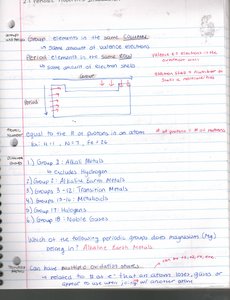 2.1 Periodic Properties Introduction
Groups and Periods
Group: elements in the same column
→ same amount of valence electrons
Period: elements in the same row
→ same amount of electron shells
Valence e⁻ = electrons in the outermost shell
Electron shell =
Group
Period
Atomic Number
equal to the # of protons in an atom
# of protons = # of electrons
Ex: H = 1, N = 7, Fe = 26
1) Group 1: Alkali Metals
→ Excludes Hydrogen
2) Group 2: Alkaline Earth Metals
3) Groups 3-12: Transition Metals
4) Groups 13-16: Metalloids
5) Group 17: Halogens
6) Group 18: Noble Gases
Which of the following periodic groups does magnesium (Mg)
belong in? Alkaline Earth Metals
can have multiple oxidation states
→ related to # of e⁻ that an atom loses, gains or
appear to use when joining w/ another atom